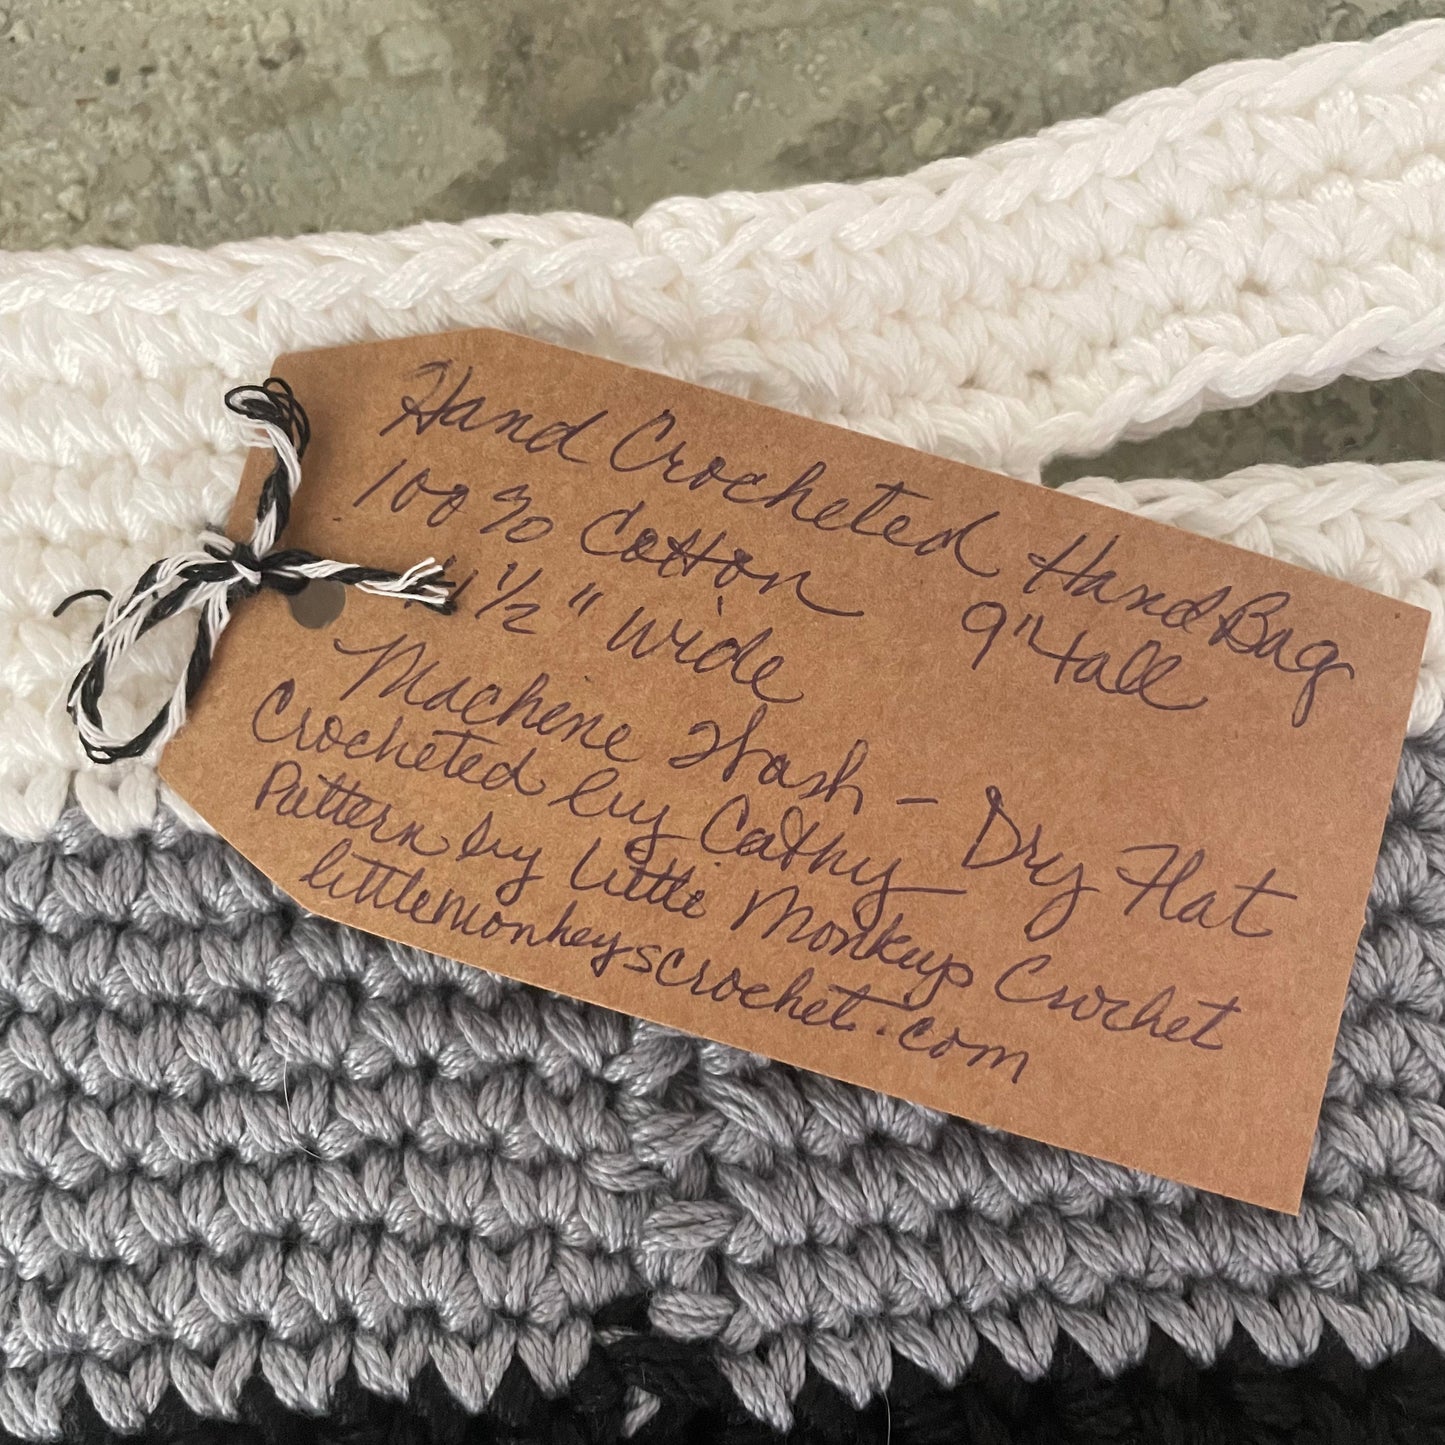 Hand Crocheted Hand Bag
100% Cotton 9" tall
11 1/2" wide
Machine Wash - Dry Flat
Crocheted by Cathy
Pattern by Little Monkeys Crochet
littlemonkeyscrochet.com